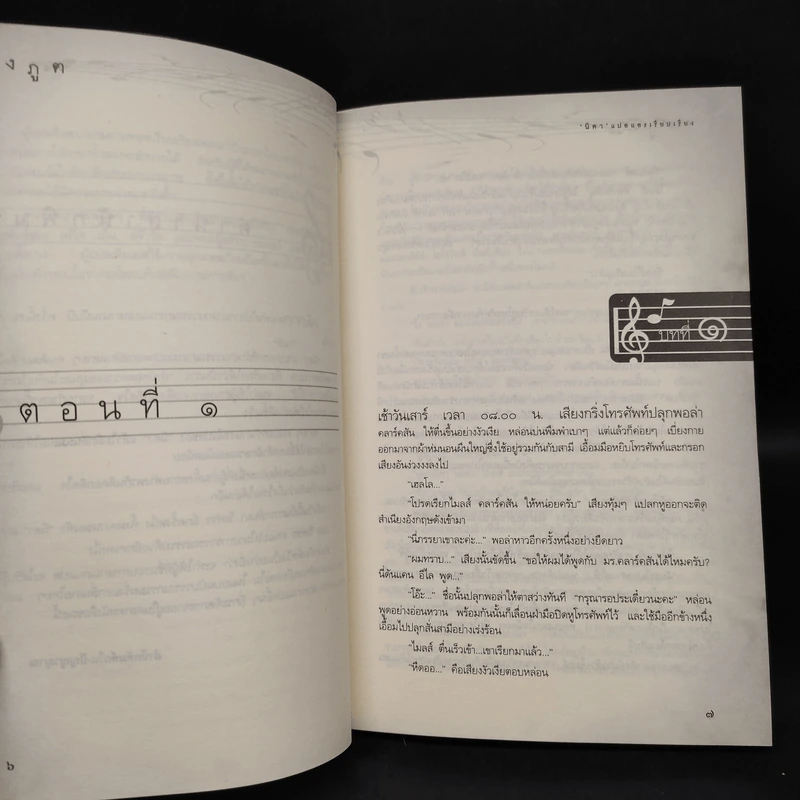 งภูต
ตอนที่ ๑
๖
'นิดา' แปลและเรียบเรียง
บทที่ ๑
เช้าวันเสาร์ เวลา ๐๘.๐๐ น. เสียงกริ่งโทรศัพท์ปลุกพอล่า
คลาร์คสัน ให้ตื่นขึ้นอย่างงัวเงีย หล่อนบ่นพึมพำเบาๆ แต่แล้วก็ค่อยๆ เบี่ยงกาย
ออกมาจากผ้าห่มนอนผืนใหญ่ซึ่งใช้อยู่รวมกันกับสามี เอื้อมมือหยิบโทรศัพท์และกรอก
เสียงอันง่วงงงลงไป
“เฮลโล...”
“โปรดเรียกไมลส์ คลาร์คสัน ให้หน่อยครับ” เสียงทุ้มๆ แปลกหูออกจะติด
สำเนียงอังกฤษดังเข้ามา
“นี่ภรรยาเขาละค่ะ...” พอล่าหาวอีกครั้งหนึ่งอย่างยืดยาว
“ผมทราบ...” เสียงนั้นชัดขึ้น “ขอให้ผมได้พูดกับ มร.คลาร์คสันได้ไหมครับ?
นี่ดันแคน อีไล พูด...”
“โอ๊ะ...” ชื่อนั้นปลุกพอล่าให้ตาสว่างทันที “กรุณารอประเดี๋ยวนะคะ” หล่อน
พูดอย่างอ่อนหวาน พร้อมกันนั้นก็เลื่อนฝ่ามือปิดหูโทรศัพท์ไว้ และใช้มืออีกข้างหนึ่ง
เอื้อมไปปลุกสั่นสามีอย่างเร่งร้อน
“ไมลส์ ตื่นเร็วเข้า...เขาเรียกมาแล้ว...”
“หืดออ...” คือเสียงงัวเงียตอบหล่อน
๗